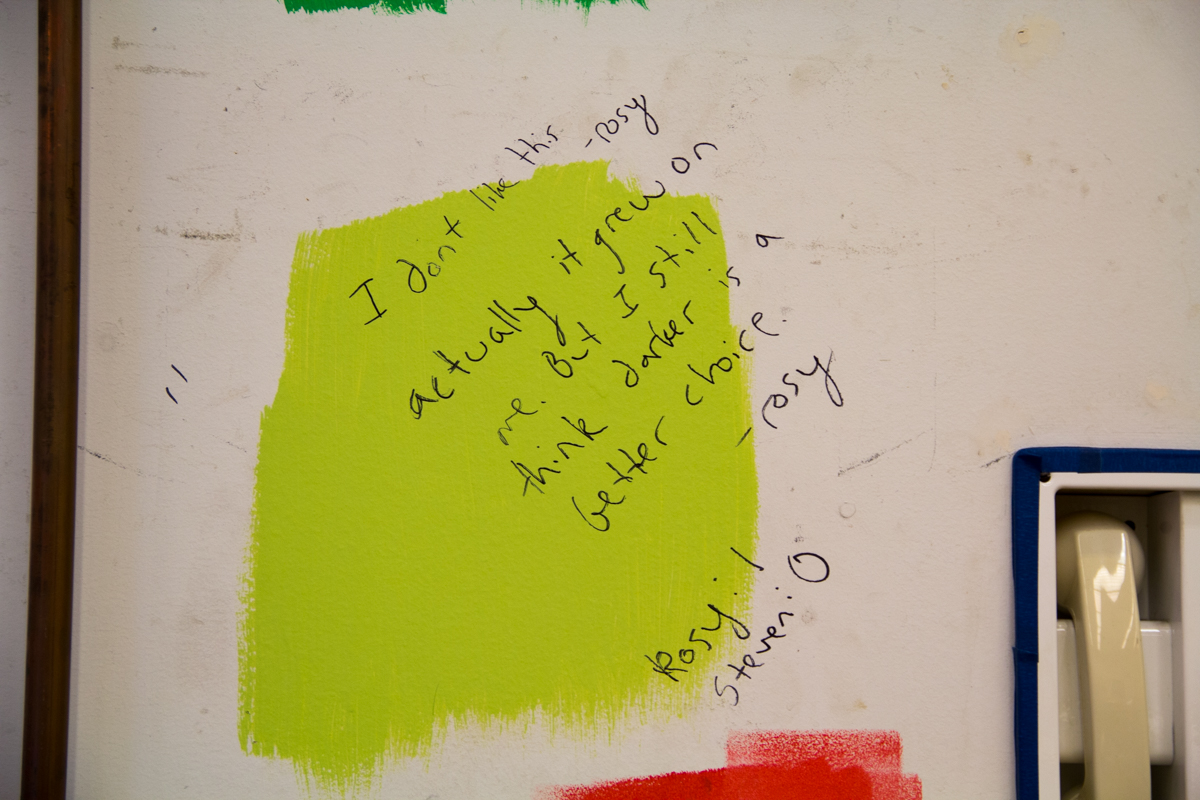 I dont like this -rosy
actually it grew on
me. But I still
think darker is a
better choice.
- rosy
Rosy: /
Steven: 0